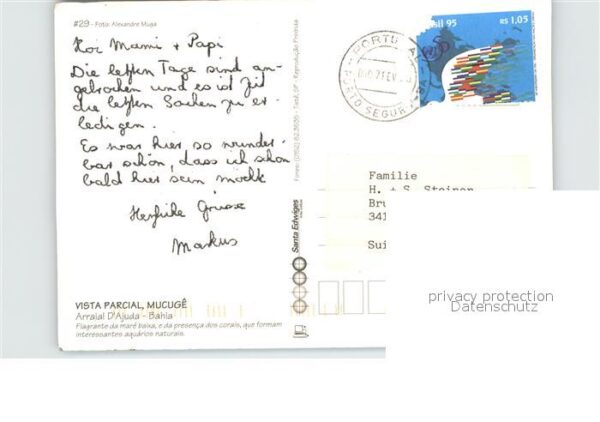 #29 - Foto: Alexandre Muga
Hoi Mami + Papi
Die letzten Tage sind an-
gebrochen und es ist Zeit
die letzten Sachen zu er-
ledigen.
Es war hier so wunder-
bar schön, dass ich schon
bald hier sein möcht
Herzliche Grüsse
Markus
VISTA PARCIAL, MUCUGÊ
Arraial D'Ajuda - Bahia
Flagrante da maré baixa, e da presença dos corais, que formam
interessantes aquários naturais.
Santa Edwiges
Reprodução Proibida
sil 95
R$ 1,05
PORTO SEGUR
FEV
Familie
H. + S. Steiner
Bru
341
Sui
privacy protection
Datenschutz